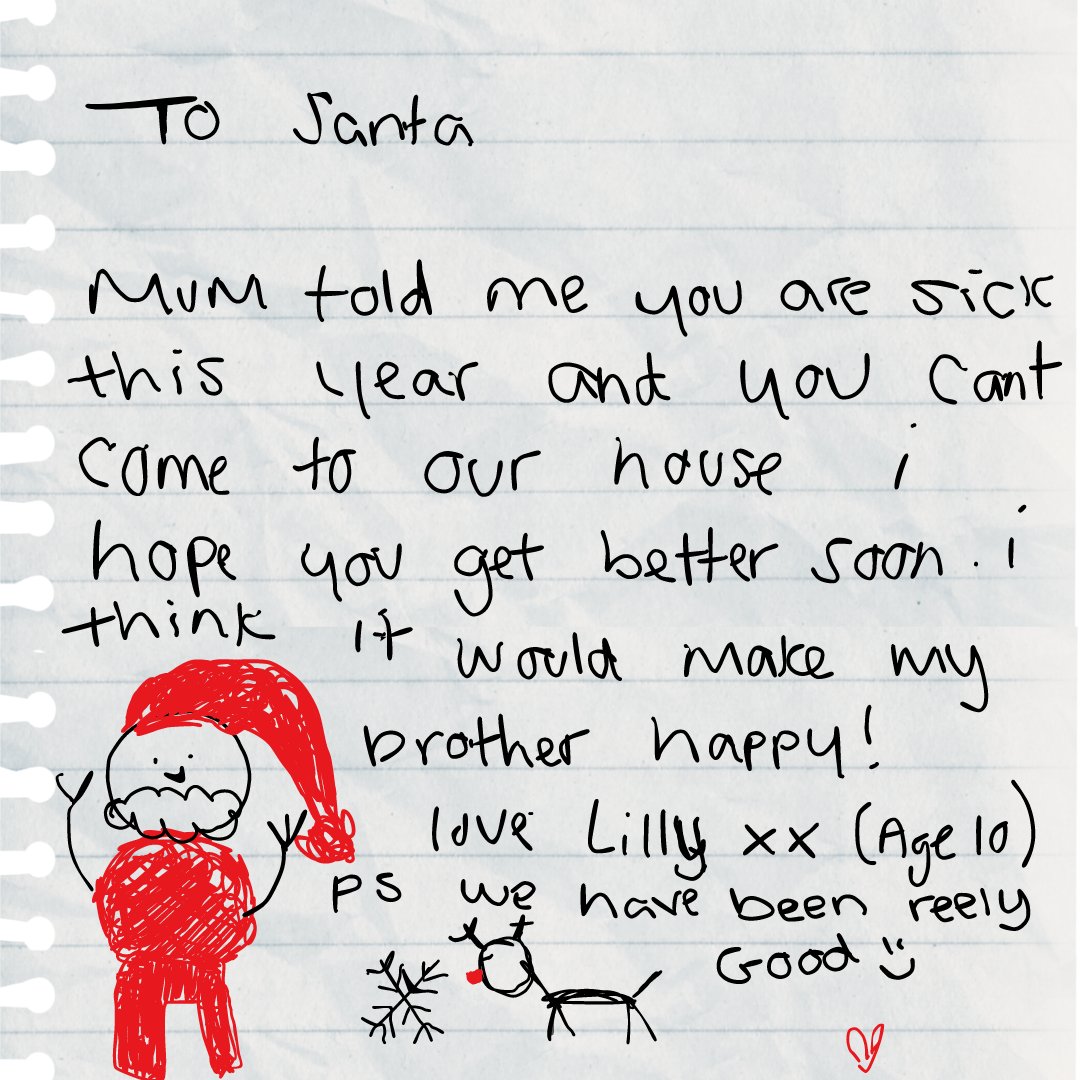 To Santa
Mum told me you are sick
this year and you cant
come to our house i
hope you get better soon. i
think it would make my
brother happy!
love Lilly xx (Age 10)
PS we have been reely
Good :)